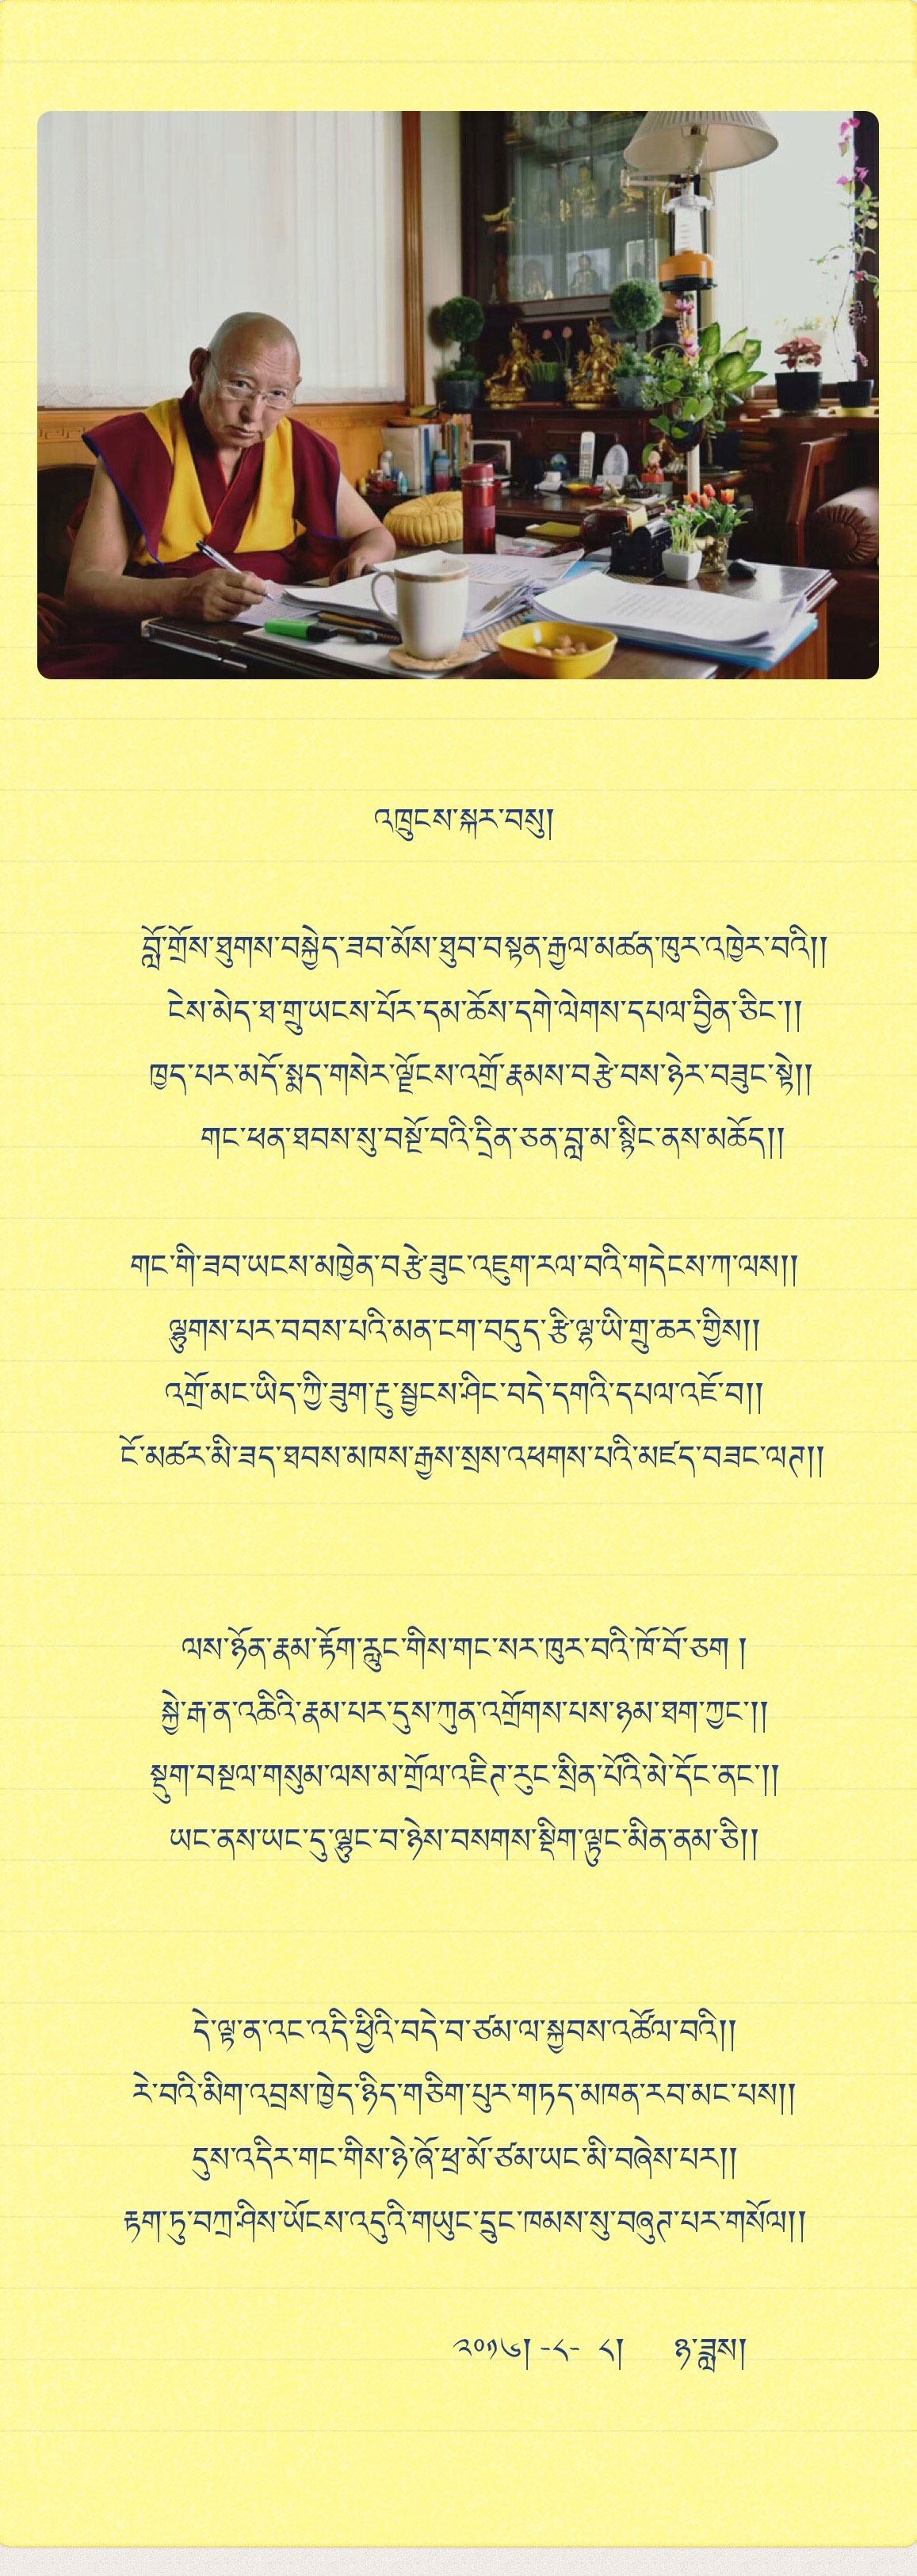 འཁྲུངས་སྐར་བསུ།
བློ་གྲོས་ཐུགས་བསྐྱེད་ཟབ་མོས་ཐུབ་བསྟན་རྒྱལ་མཚན་ཁུར་འཁྱེར་བའི།།
ངེས་མེད་ཐ་གྲུ་ཡངས་པོར་དམ་ཆོས་དགེ་ལེགས་དཔལ་བྱིན་ཅིང་།།
ཁྱད་པར་མདོ་སྨད་གསེར་ལྗོངས་འགྲོ་རྣམས་བརྩེ་བས་ཉེར་བཟུང་སྟེ།།
གང་ཕན་ཐབས་སུ་བསྔོ་བའི་དྲིན་ཅན་བླ་མ་སྙིང་ནས་མཆོད།།
གང་གི་ཟབ་ཡངས་མཁྱེན་བརྩེ་ཟུང་འཇུག་རལ་བའི་གདེངས་ཀ་ལས།།
ལྷུགས་པར་བབས་པའི་མན་ངག་བདུད་རྩི་ལྷ་ཡི་གྲུ་ཆར་གྱིས།།
འགྲོ་མང་ཡིད་ཀྱི་ཟུག་རྔུ་སྦྱངས་ཤིང་བདེ་དགའི་དཔལ་འཇོ་བ།།
ངོ་མཚར་མི་ཟད་ཐབས་མཁས་རྒྱས་སྲས་འཕགས་པའི་མཛད་བཟང་ལཊ།།
ལས་ཉོན་རྣམ་རྟོག་རླུང་གིས་གང་སར་ཁུར་བའི་ཁོ་བོ་ཅག །
སྐྱེ་རྒ་ན་འཆིའི་རྣམ་པར་དུས་ཀུན་འགྲོགས་པས་ཉམ་ཐག་ཀྱང་།།
སྡུག་བསྔལ་གསུམ་ལས་མ་གྲོལ་འཇིཊ་རུང་སྲིན་པོའི་མེ་དོང་ནང་།།
ཡང་ནས་ཡང་དུ་ལྷུང་བ་ཉེས་བསགས་སྡིག་ལྟུང་མིན་ནམ་ཅི།།
དེ་ལྟ་ན་འང་འདི་ཕྱིའི་བདེ་བ་ཙམ་ལ་སྐྱབས་འཚོལ་བའི།།
རེ་བའི་མིག་འབྲས་ཁྱེད་ཉིད་གཅིག་པུར་གཏད་མཁན་རབ་མང་པས།།
དུས་འདིར་གང་གིས་ཉེ་ཞོ་ཕྲ་མོ་ཙམ་ཡང་མི་བཞེས་པར།།
རྟག་ཏུ་བཀྲ་ཤིས་ཡོངས་འདུའི་གཡུང་དྲུང་ཁམས་སུ་བཞུཊ་པར་གསོལ།།
༢༠༡༦། -༨- ༨། ཉ་ཟླས།